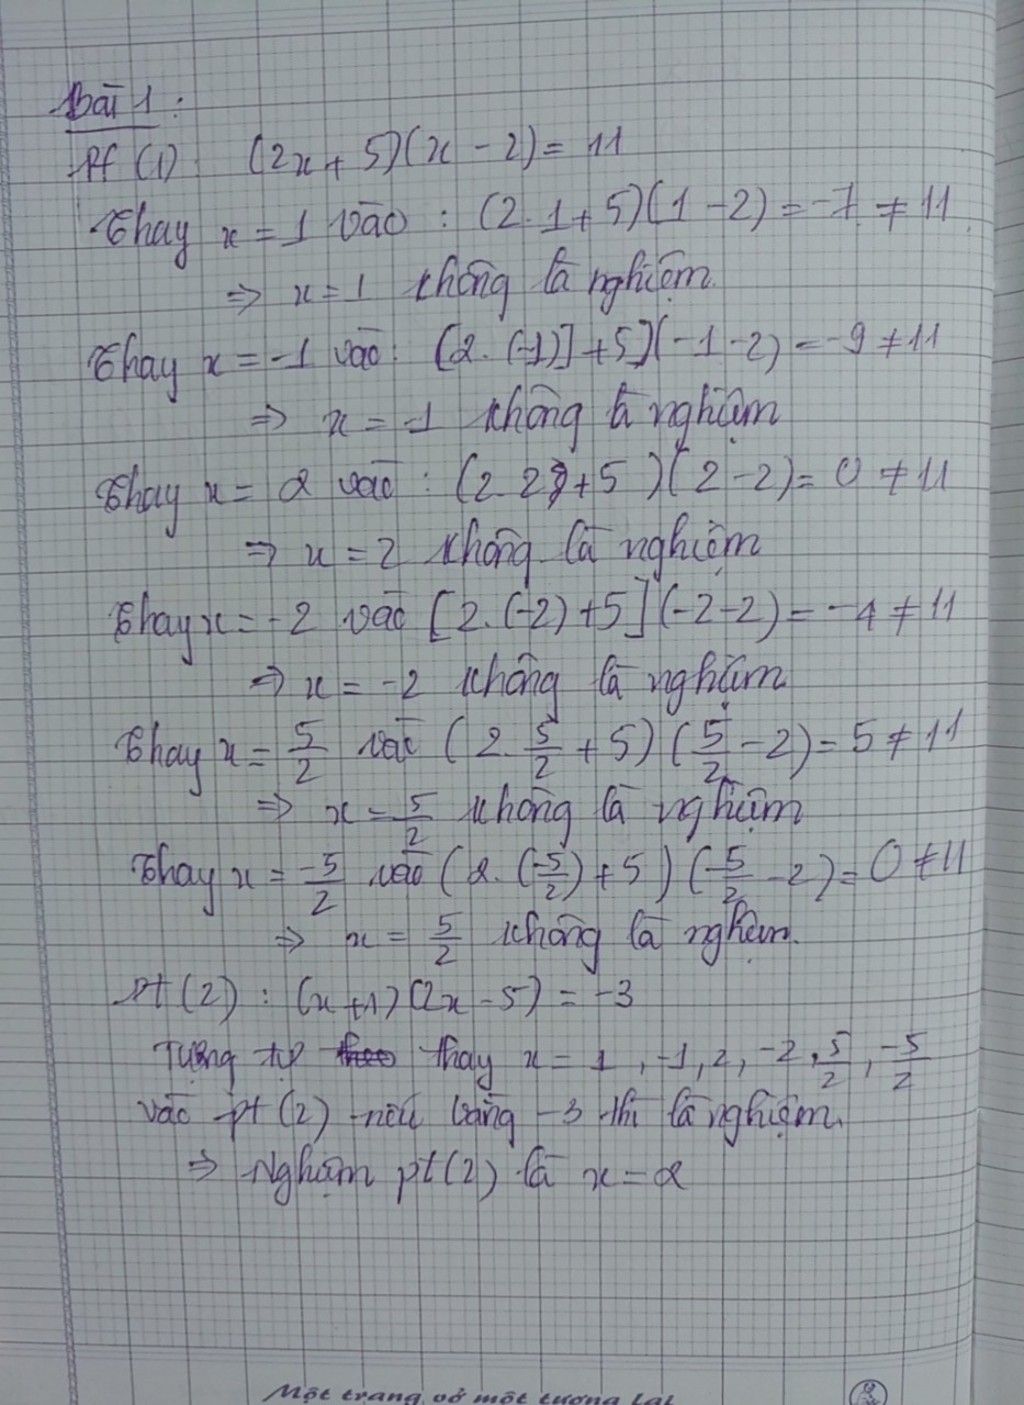 Bài 1:
Pt (1): (2x + 5)(x - 2) = 11
Thay x = 1 vào : (2.1 + 5)(1 - 2) = -7 ≠ 11
⇒ x = 1 không là nghiệm.
Thay x = -1 vào: (2.(-1)] + 5](-1 - 2) = -9 ≠ 11
⇒ x = -1 không là nghiệm
Thay x = 2 vào : (2.2 + 5)(2 - 2) = 0 ≠ 11
⇒ x = 2 không là nghiệm
Thay x = -2 vào [2.(-2) + 5](-2 - 2) = -4 ≠ 11
⇒ x = -2 không là nghiệm
Thay x = 5/2 vào (2.5/2 + 5)(5/2 - 2) = 5 ≠ 11
⇒ x = 5/2 không là nghiệm
Thay x = -5/2 vào (2.(-5/2) + 5)(-5/2 - 2) = 0 ≠ 11
⇒ x = 5/2 không là nghiệm.
Pt (2) : (x + 1)(2x - 5) = -3
Tương tự thay x = 1, -1, 2, -2, 5/2, -5/2
vào pt (2) nếu bằng -3 thì là nghiệm.
⇒ Nghiệm pt (2) là x = 2
Một trang vở một tương lai